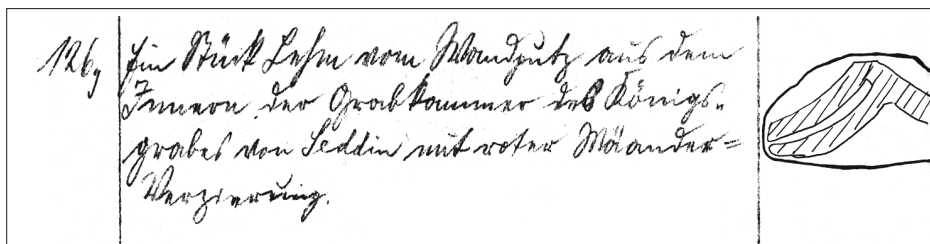 126, Ein Stück Lehm vom Wandputz aus dem
Innern der Grabkammer des Königs-
grabes von Seddin mit roter Mäander=
Verzierung.